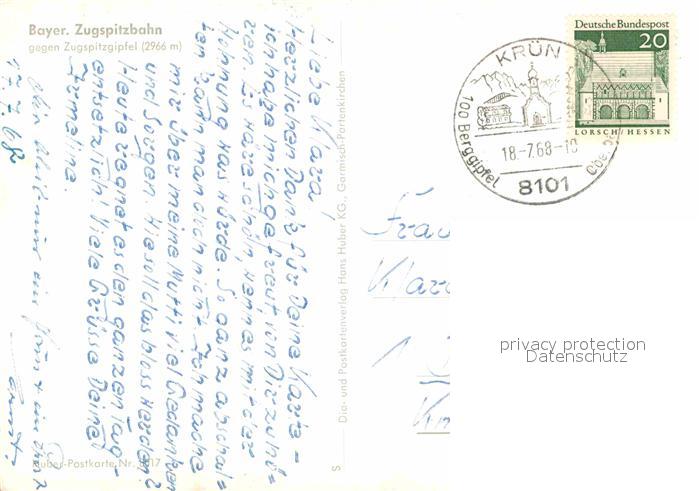 Bayer. Zugspitzbahn
gegen Zugspitzgipfel (2966 m)
17.7.68
Liebe Klara,
Herzlichen Dank für Deine Karte -
ich habe mich gefreut, von Dir zu hö=
ren. Es wäre schön, wenn es mit der
Wohnung was würde. So ganz abschal=
ten kann man doch nicht. Ich mache
mir über meine Mutti viel Gedanken
und Sorgen. Wie soll das bloss werden?
Heute regnet es den ganzen Tag -
entsetzlich! Viele Grüsse Deine
Irmelina.
Huber-Postkarte Nr. 8117
S
Dia- und Postkartenverlag Hans Huber KG., Garmisch-Partenkirchen
KRÜN
100 Berggipfel
18.-7.68-10
8101
Deutsche Bundespost
20
LORSCH/HESSEN
Frau
Klar
1
privacy protection
Datenschutz